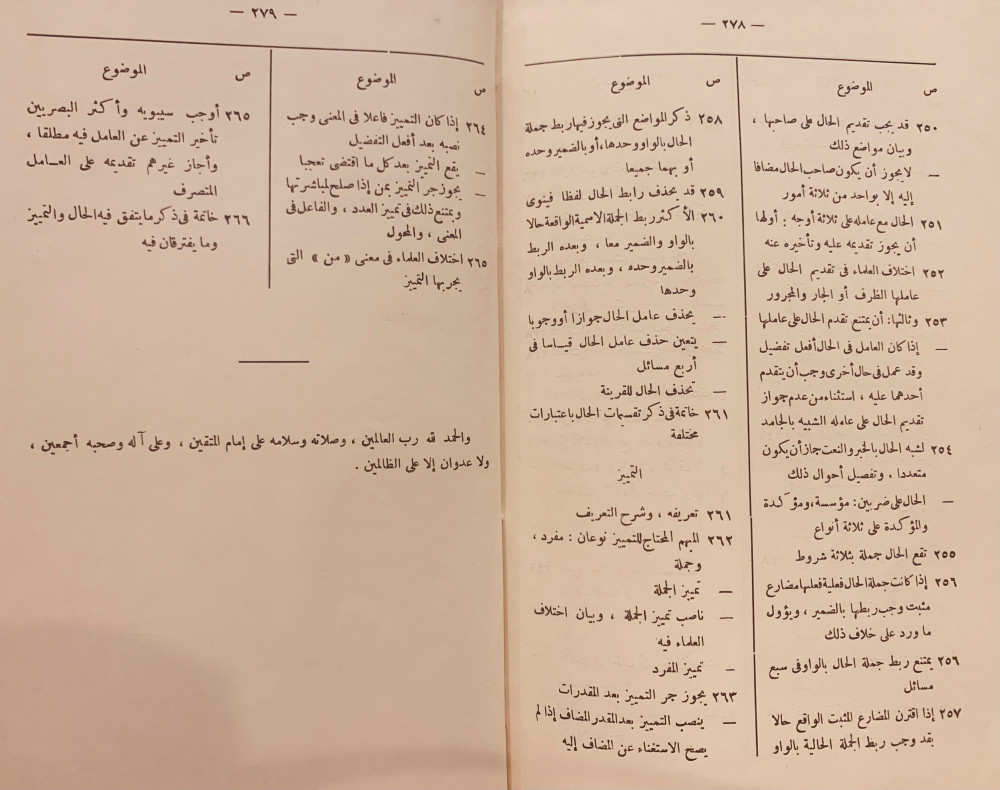 — ٢٧٨ —
ص الموضوع
٢٥٠ قد يجب تقديم الحال على صاحبها ،
وبيان مواضع ذلك
— لا يجوز أن يكون صاحب الحال مضافا
إليه إلا بواحد من ثلاثة أمور
٢٥١ الحال مع عامله على ثلاثة أوجه : أولها
أن يجوز تقديمه عليه وتأخيره عنه
٢٥٢ اختلاف العلماء فى تقديم الحال على
عاملها الظرف أو الجار والمجرور
٢٥٣ وثالثها: أن يمتنع تقدم الحال على عاملها
— إذا كان العامل فى الحال أفعل تفضيل
وقد عمل فى حال أخرى وجب أن يتقدم
أحدهما عليه ، استثناء من عدم جواز
تقديم الحال على عامله الشبيه بالجامد
٢٥٤ لشبه الحال بالخبر والنعت جاز أن يكون
متعددا . وتفصيل أحوال ذلك
— الحال على ضربين : مؤسسة، ومؤكدة
والمؤكدة على ثلاثة أنواع
٢٥٥ تقع الحال جملة بثلاثة شروط
٢٥٦ إذا كانت جملة الحال فعلية فعلها مضارع
مثبت وجب ربطها بالضمير ، ويؤول
ما ورد على خلاف ذلك
٢٥٦ يمتنع ربط جملة الحال بالواو فى سبع
مسائل
٢٥٧ إذا اقترن المضارع المثبت الواقع حالا
بقد وجب ربط الجملة الحالية بالواو
ص الموضوع
٢٥٨ ذكر المواضع التى يجوز فيها ربط جملة
الحال بالواو وحدها، أو بالضمير وحده
أو بهما جميعا
٢٥٩ قد يحذف رابط الحال لفظا فينوى
٢٦٠ الأكثر ربط الجملة الاسمية الواقعة حالا
بالواو والضمير معا ، وبعده الربط
بالضمير وحده ، وبعده الربط بالواو
وحدها
— يحذف عامل الحال جوازا أو وجوبا
— يتعين حذف عامل الحال قياسا فى
أربع مسائل
— تحذف الحال للقرينة
٢٦١ خاتمة فى ذكر تقسيمات الحال باعتبارات
مختلفة
التمييز
٢٦١ تعريفه ، وشرح التعريف
٢٦٢ المبهم المحتاج للتمييز نوعان : مفرد ،
وجملة
— تمييز الجملة
— ناصب تمييز الجملة ، وبيان اختلاف
العلماء فيه
— تمييز المفرد
٢٦٣ يجوز جر التمييز بعد المقدرات
— ينصب التمييز بعد المقدر المضاف إذا لم
يصح الاستغناء عن المضاف إليه
— ٢٧٩ —
ص الموضوع
٢٦٤ إذا كان التمييز فاعلا فى المعنى وجب
نصبه بعد أفعل التفضيل
— يقع التمييز بعد كل ما اقتضى تعجبا
— يجوز جر التمييز بمن إذا صلح لمباشرتها
ويمتنع ذلك فى تمييز العدد ، والفاعل فى
المعنى ، والمحول
٢٦٥ اختلاف العلماء فى معنى « من » التى
يجر بها التمييز
ص الموضوع
٢٦٥ أوجب سيبويه وأكثر البصريين
تأخير التمييز عن العامل فيه مطلقا ،
وأجاز غيرهم تقديمه على العامل
المتصرف
٢٦٦ خاتمة فى ذكر ما يتفق فيه الحال والتمييز
وما يفترقان فيه
والحمد لله رب العالمين ، وصلاته وسلامه على إمام المتقين ، وعلى آله وصحبه أجمعين ،
ولا عدوان إلا على الظالمين .